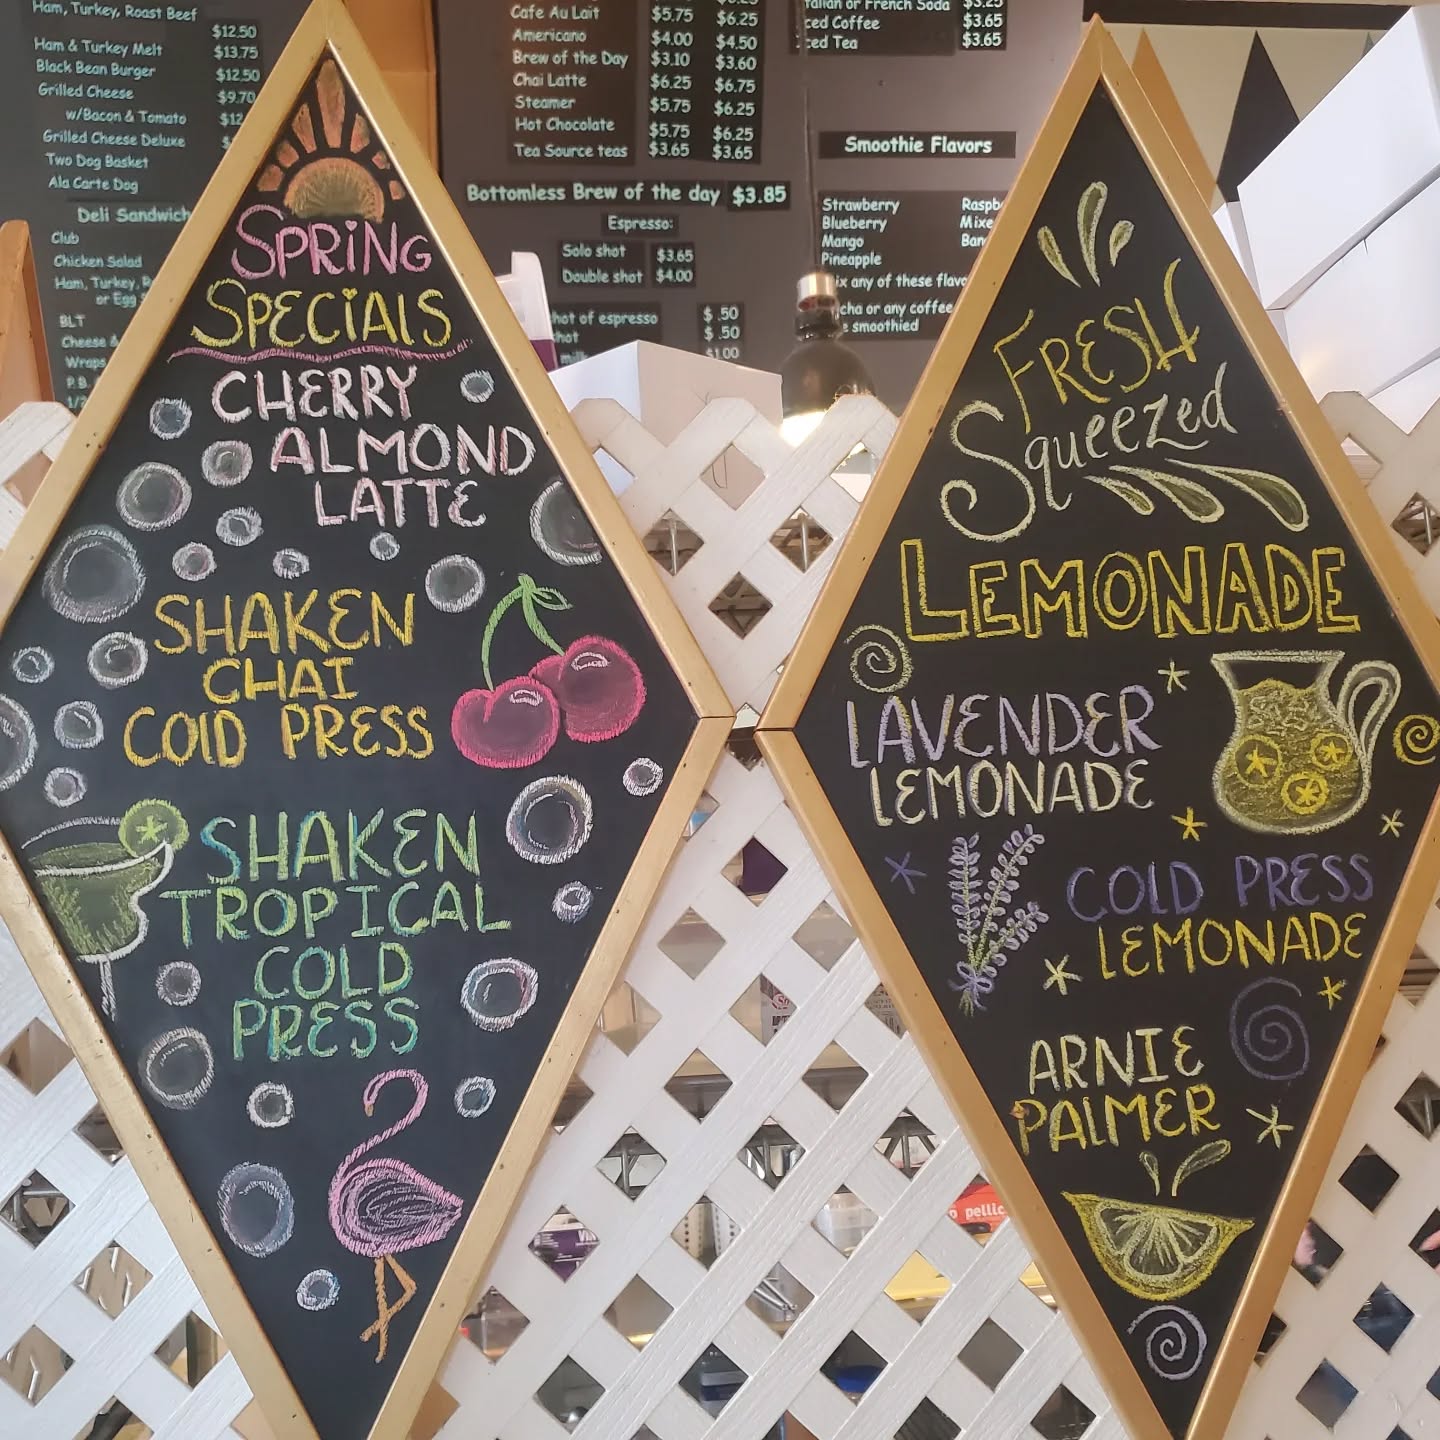 Ham, Turkey, Roast Beef
$12.50
Ham & Turkey Melt $13.75
Black Bean Burger $12.50
Grilled Cheese $9.70
w/Bacon & Tomato
Grilled Cheese Deluxe
Two Dog Basket
Ala Carte Dog
Deli Sandwich
Club
Chicken Salad
Ham, Turkey,
or Egg
BLT
Cheese &
Wraps
P.B.
Cafe Au Lait $5.75 $6.25
Americano $4.00 $4.50
Brew of the Day $3.10 $3.60
Chai Latte $6.25 $6.75
Steamer $5.75 $6.25
Hot Chocolate $5.75 $6.25
Tea Source teas $3.65 $3.65
Bottomless Brew of the day $3.85
Espresso:
Solo shot $3.65
Double shot $4.00
hot of espresso $.50
hot $.50
milk $1.00
Italian or French Soda $3.25
ced Coffee $3.65
ced Tea $3.65
Smoothie Flavors
Strawberry Raspb
Blueberry Mixe
Mango Ban
Pineapple
ix any of these flavo
cha or any coffee
e smoothied
SPRING
SPECIALS
CHERRY
ALMOND
LATTE
SHAKEN
CHAI
COLD PRESS
SHAKEN
TROPICAL
COLD
PRESS
FRESH
Squeezed
LEMONADE
LAVENDER
LEMONADE
COLD PRESS
LEMONADE
ARNIE
PALMER
pellic